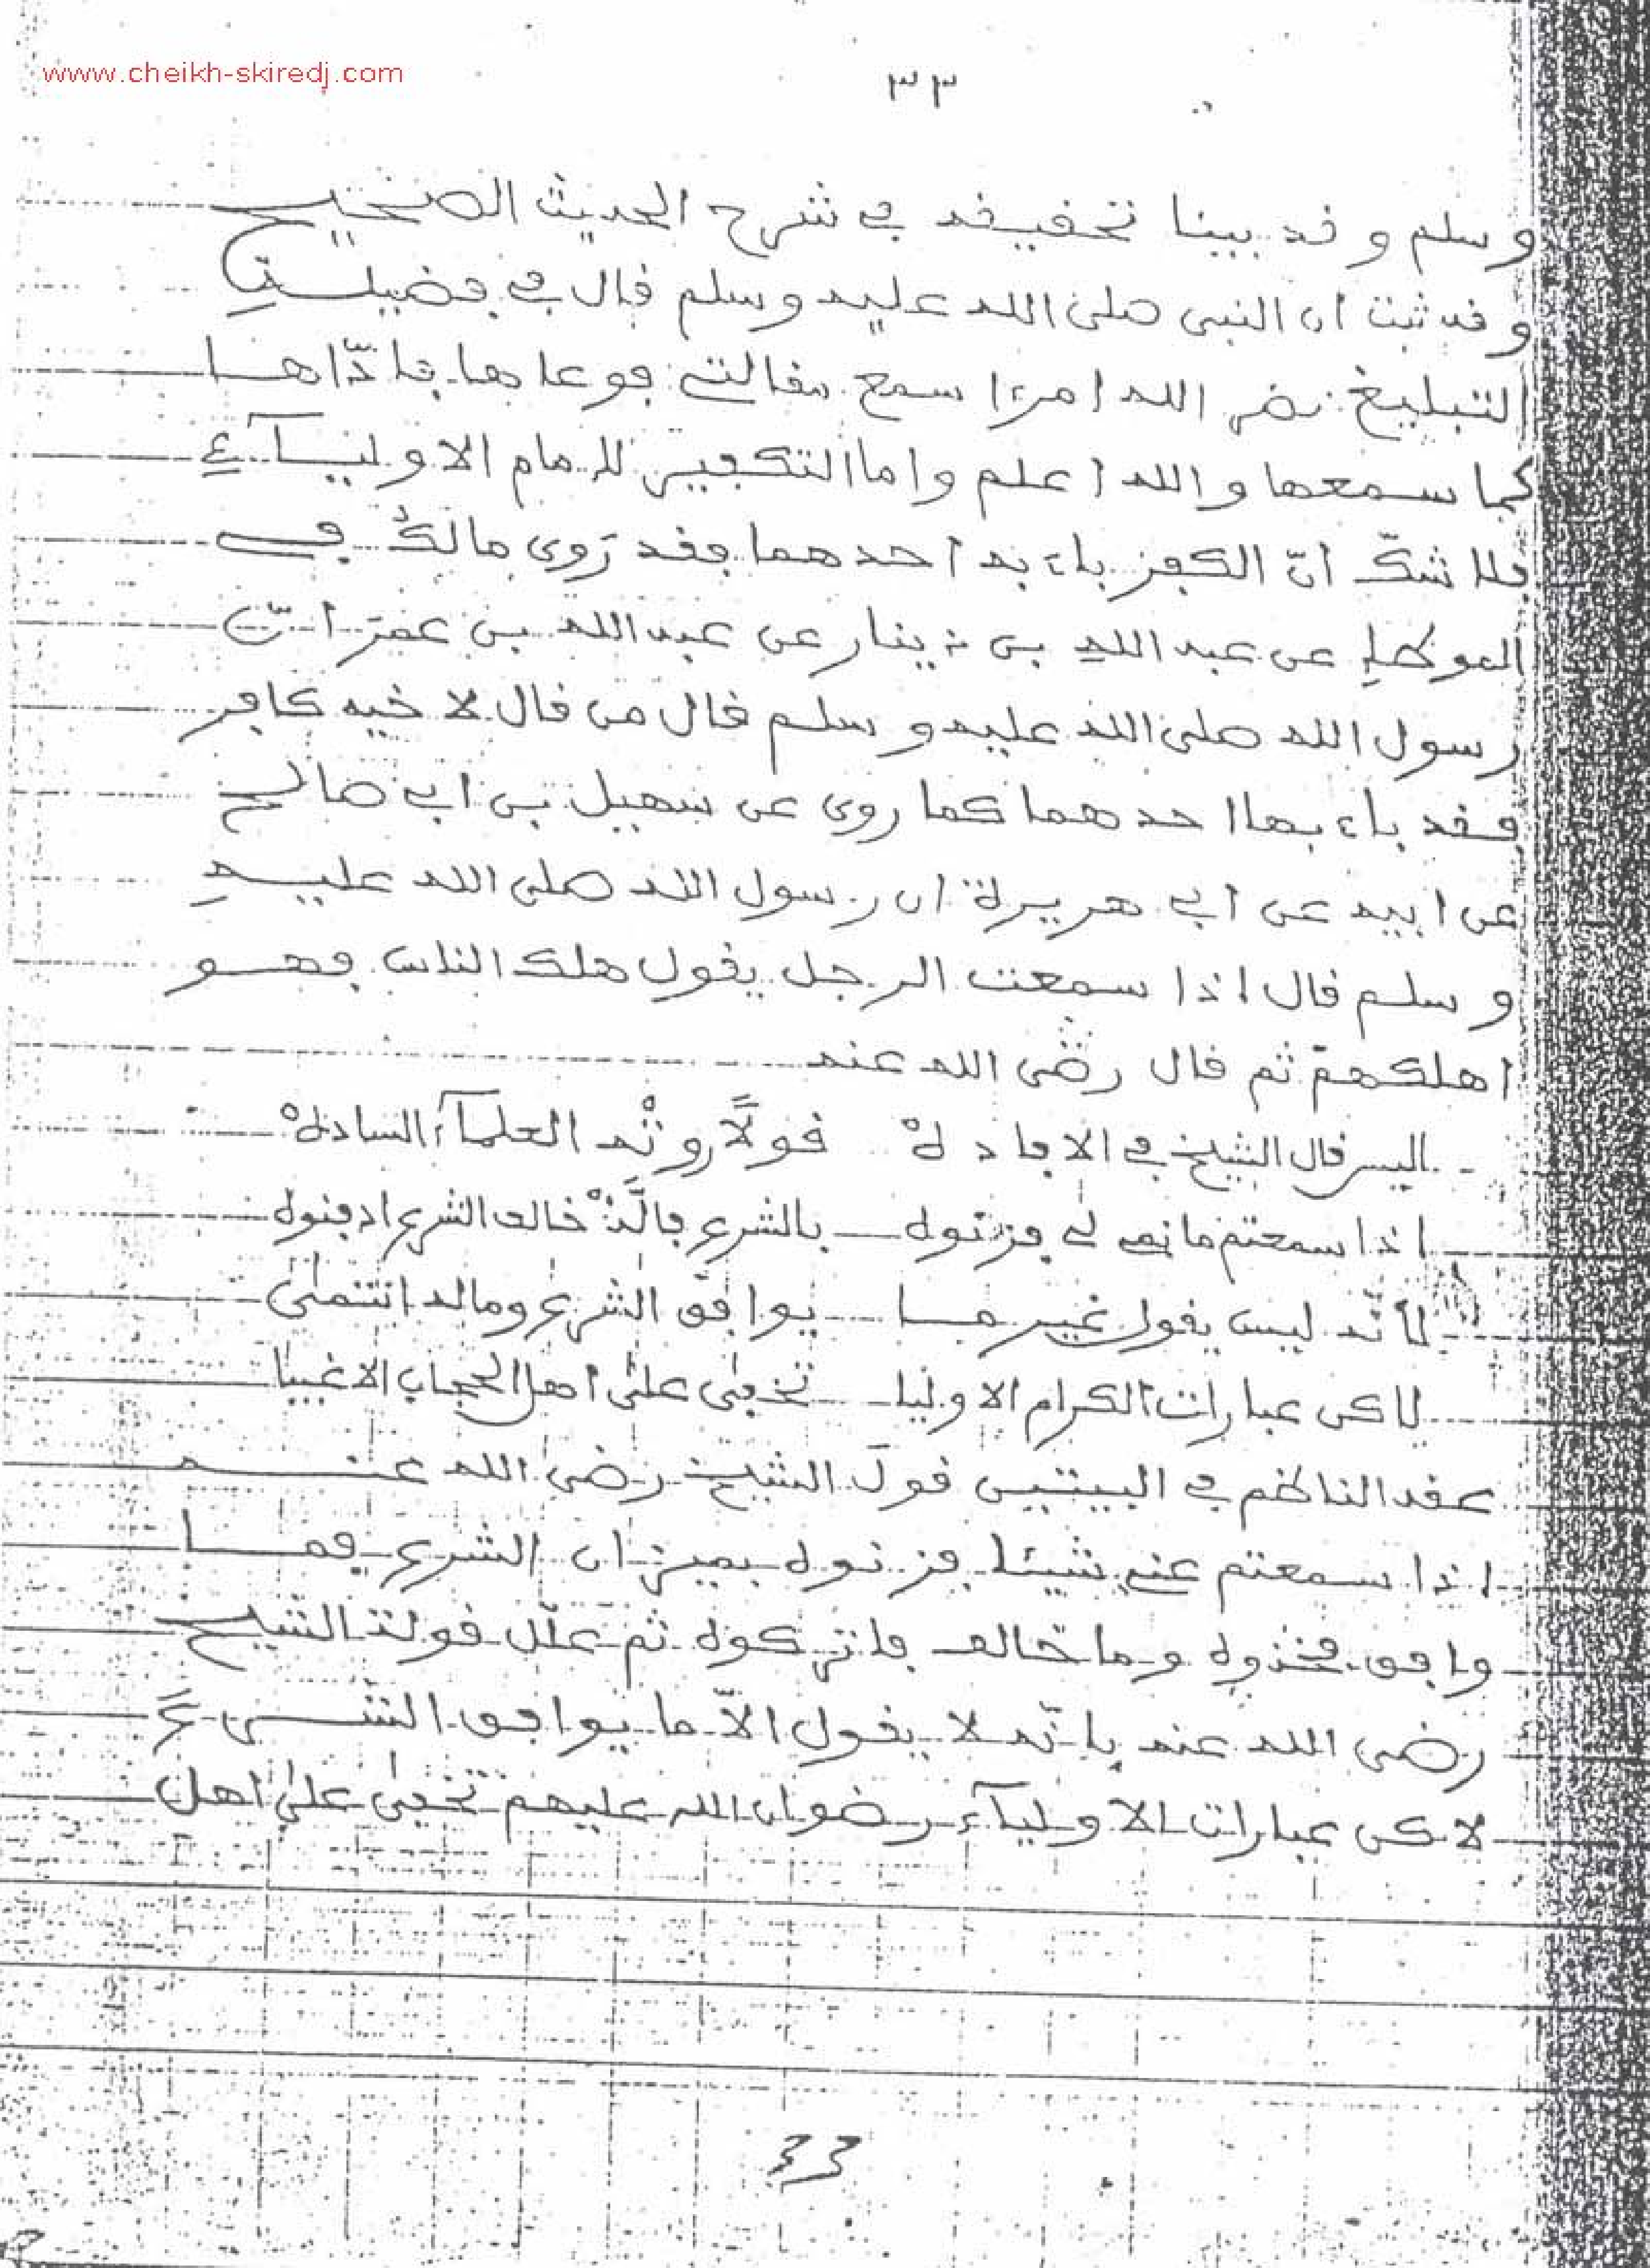 www.cheikh-skiredj.com
٣٣
وسلم وقد بينا تحقيقه في شرح الحديث الصحيح
وقد ثبت ان النبي صلى الله عليه وسلم قال في فضيلة
التبليغ نضر الله امرءا سمع مقالتي فوعاها فادّاها
كما سمعها والله اعلم واما التكفير للامام الاوليآء
فلا شكّ انّ الكفر باء به احدهما فقد رَوى مالكٌ في
الموطإ عن عبد الله بن دينار عن عبد الله بن عمرَ انّ
رسول الله صلى الله عليه وسلم قال من قال لاخيه كافر
فقد باء بها احدهما كما روى عن سهيل بن ابي صالح
عن ابيه عن ابي هريرة ان رسول الله صلى الله عليه
وسلم قال اذا سمعت الرجل يقول هلك الناس فهو
اهلكهم ثم قال رضى الله عنه
اليس قال الشيخ في الافاده قولًا روتْه العلمآء الساده
اذا سمعتم ما نمي لي فزنوه بالشرع فالّذْ خالف الشرع ادفنوه
لأنّه ليس يقول غير ما يوافق الشرع وماله انتمى
لاكن عبارات الكرام الاوليا تخفى على اهل الحجاب الاغبيا
عقد الناظم في البيتين قول الشيخ رضى الله عنه
اذا سمعتم عني شيئا فزنوه بميزان الشرع فما
وافق فخذوه وما خالف فاتركوه ثم علّل قولة الشيخ
رضى الله عنه بانّه لا يقول الاّ ما يوافق الشرعَ
لاكن عبارات الاوليآء رضوان الله عليهم تخفى على اهل
33